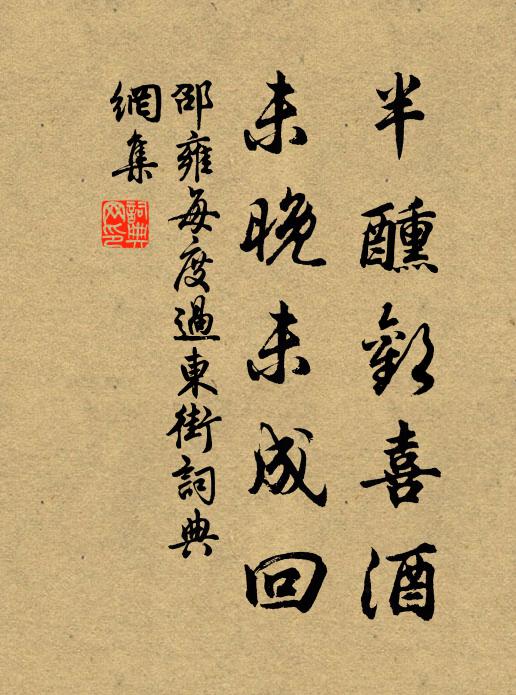 半醺歡喜酒
未晚未成回
邵雍每度過東街詞典
網集
詞典
网印